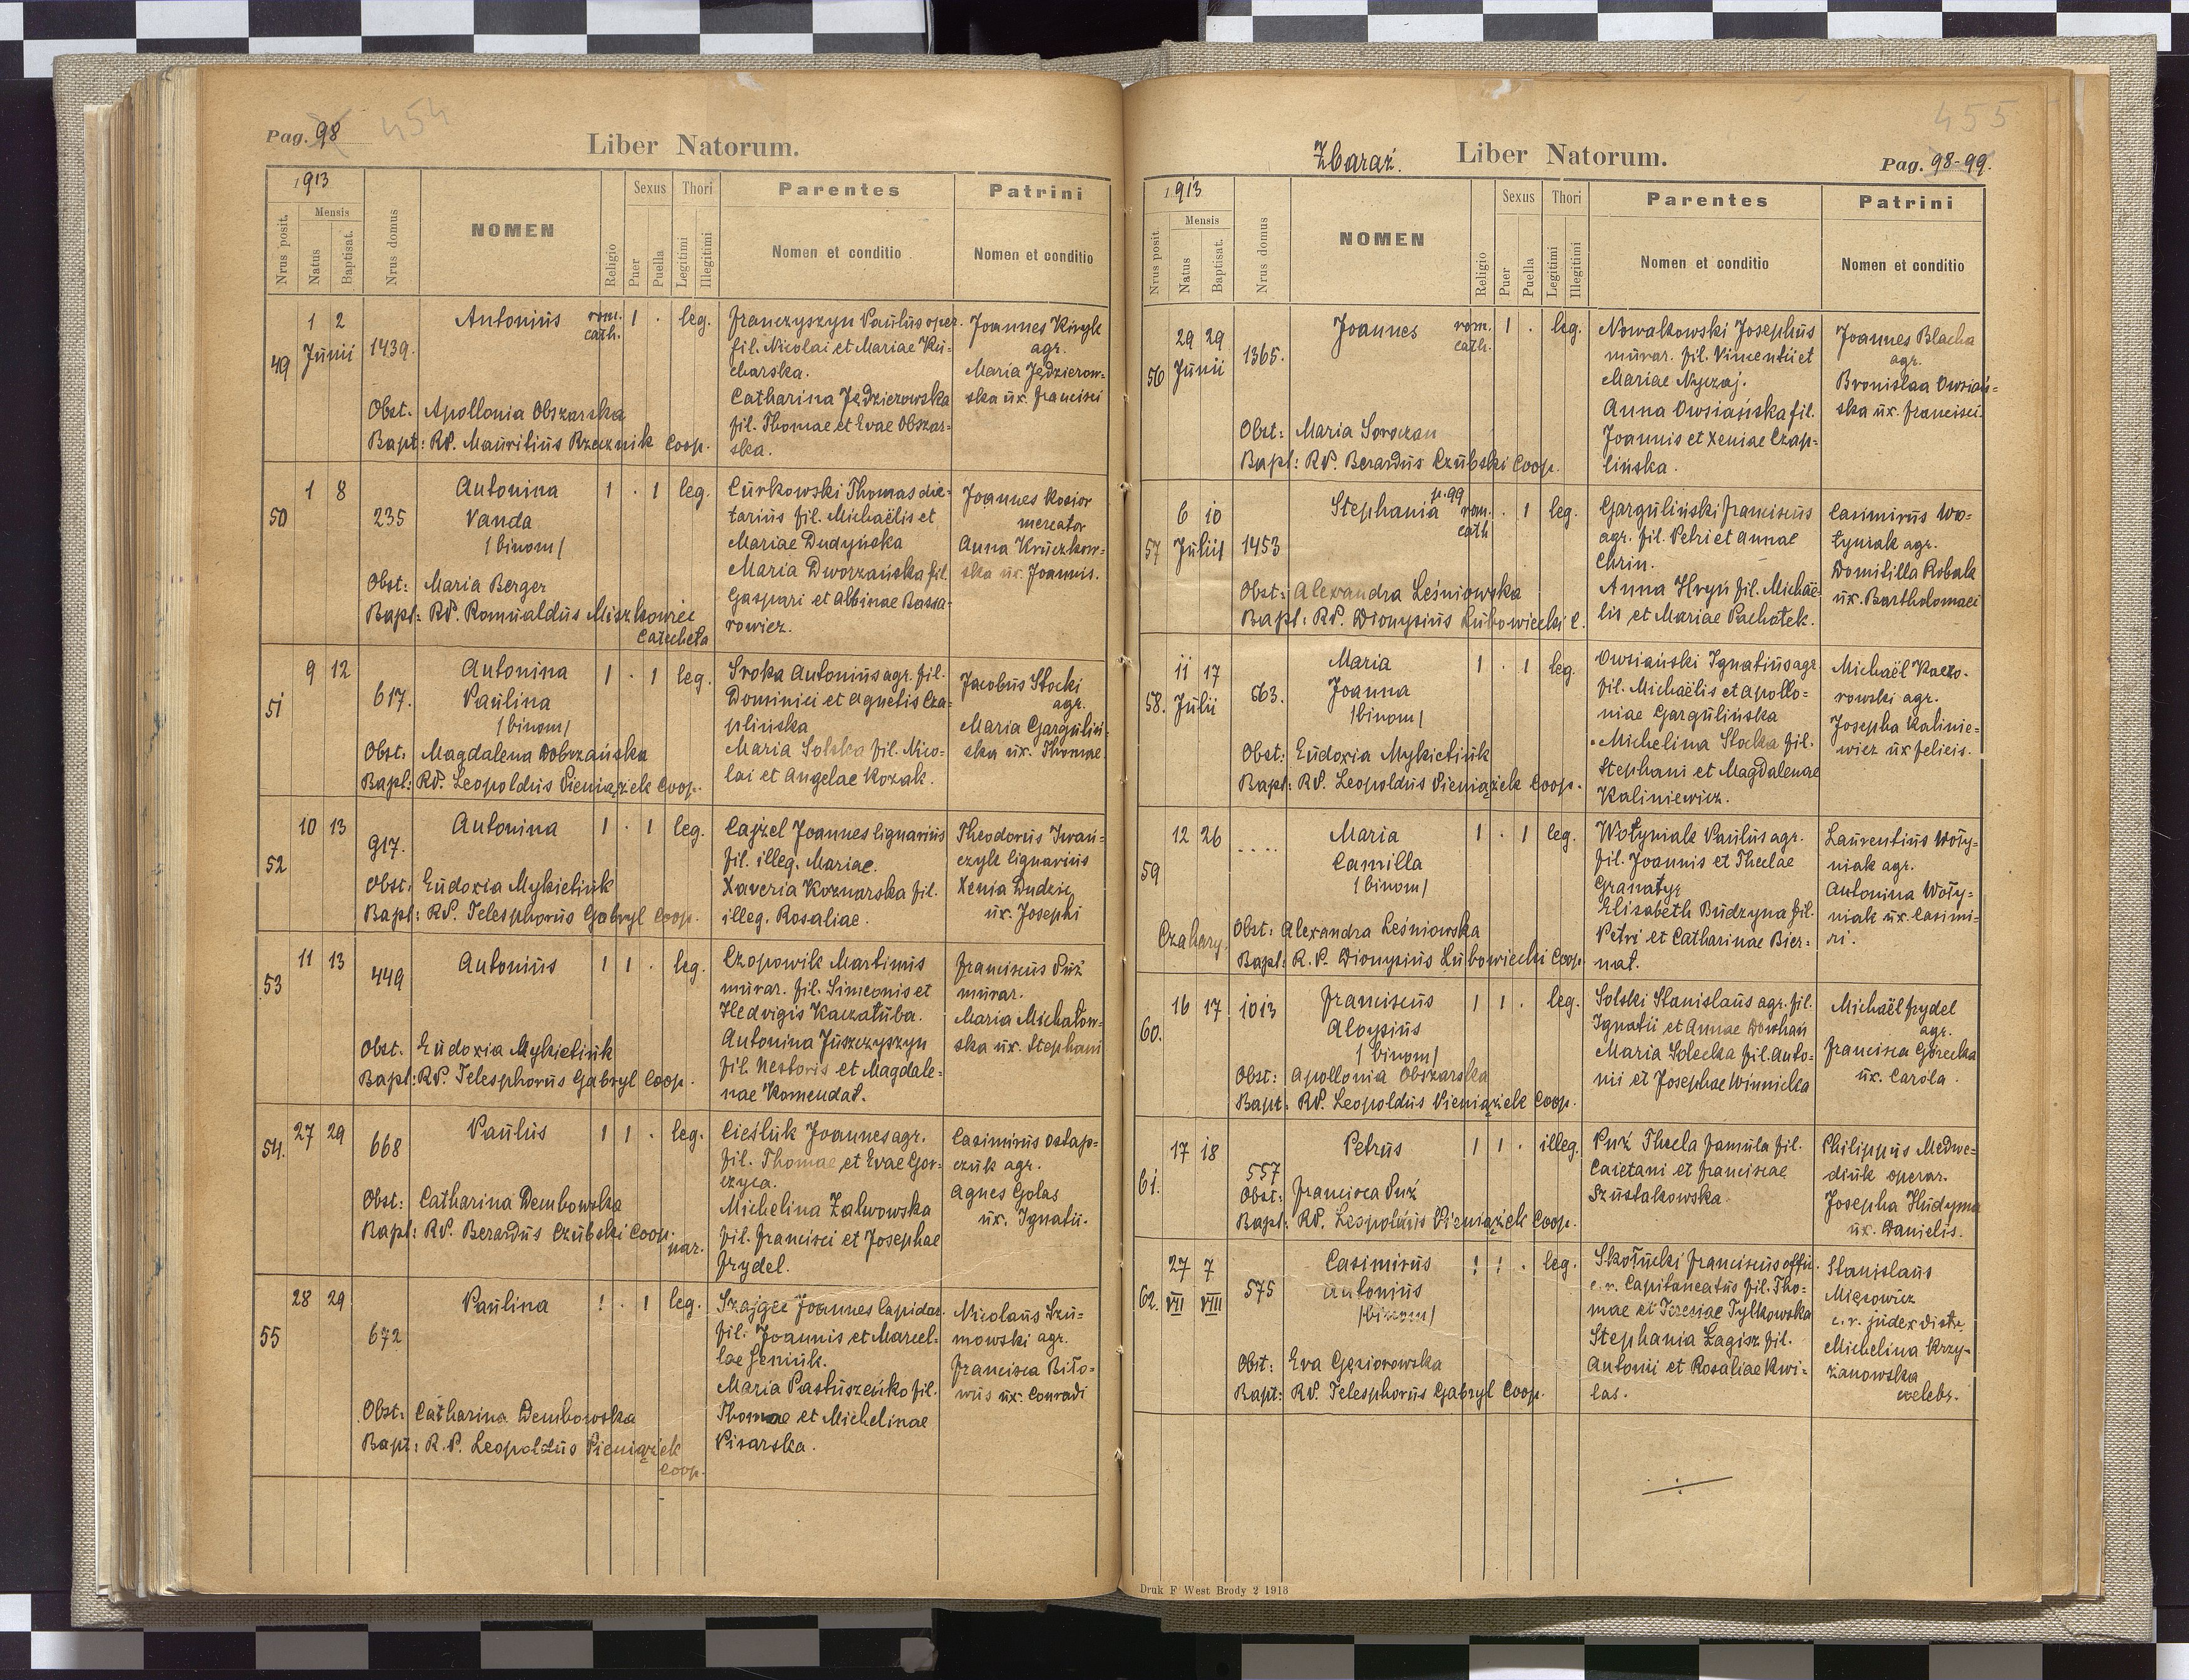 Pag. 98 454
Liber Natorum.
1913
Nrus posit.
Mensis
Natus
Baptisat.
Nrus domus
NOMEN
Religio
Sexus
Puer
Puella
Thori
Legitimi
Illegitimi
Parentes
Nomen et conditio
Patrini
Nomen et conditio
49
1 2
Junii
1439.
Antonius
rom.
cath.
1 . leg.
Franczyszyn Paulus oper.
fil. Nicolai et Mariae Ku-
charska.
Catharina Jędzierowska
fil. Thomae et Evae Obszar-
ska.
Joannes Kiryk
agr.
Maria Jędzierow-
ska ux. Francisci
Obst. Apollonia Obszarska
Bapt: RP. Mauritius Rzeznik Coop.
50
1 8
235
Antonina
Vanda
/binom/
1 . 1 leg.
Curkowski Thomas die-
tarius fil. Michaëlis et
Mariae Dudyńska
Maria Dworzańska fil.
Gaspari et Albinae Bassa-
rowicz.
Joannes Kosior
mercator
Anna Kruczkow-
ska ux. Joannis.
Obst: Maria Berger
Bapt: RP. Romualdus Miszkowiec
Catecheta
51
9 12
617.
Antonina
Paulina
/binom/
1 . 1 leg.
Sroka Antonius agr. fil.
Dominici et Agnetis Cza-
plińska
Maria Solska fil. Nico-
lai et Angelae Kozak.
Jacobus Stocki
agr.
Maria Garguliń-
ska ux. Thomae
Obst. Magdalena Dobrzańska
Bapt: RP. Leopoldus Pieniążek Coop.
52
10 13
917.
Antonina
1 . 1 leg.
Cajzel Joannes lignarius
fil. illeg. Mariae.
Xaveria Koznarska fil.
illeg. Rosaliae.
Theodorus Iwań-
czyk lignarius
Xenia Dudzic
ux. Josephi
Obst: Eudoxia Mykietiuk
Bapt: RP. Telesphorus Gabryl Coop.
53
11 13
449
Antonius
1 1 . leg.
Czopowik Martinus
murar. fil. Simeonis et
Hedvigis Kaczałuba.
Antonina Juszczyszyn
fil. Nestoris et Magdale-
nae Komendat.
Franciscus Puź
murar.
Maria Michałow-
ska ux. Stephani
Obst. Eudoxia Mykietiuk
Bapt: RP. Telesphorus Gabryl Coop.
54.
27 29
668
Paulus
1 1 . leg.
Cieśluk Joannes agr.
fil. Thomae et Evae Gor-
czyca.
Michelina Zalwowska
fil. Francisci et Josephae
Frydel.
Casimirus Ostap-
czuk agr.
Agnes Golas
ux. Ignatii.
Obst: Catharina Dembowska
Bapt: RP. Berardus Czubski Coop.
par.
55
28 29
672
Paulina
! . 1 leg.
Szajgec Joannes lapidar.
fil. Joannis et Marcel-
lae Seniuk.
Maria Pastuszeńko fil.
Thomae et Michelinae
Pisarska.
Nicolaus Szu-
mowski agr.
Francisca Biło-
wus ux. Conradi
Obst: Catharina Dembowska
Bapt: R.P. Leopoldus Pieniążek
Coop.
455
Zbaraż. Liber Natorum. Pag. 98-99.
1913
Nrus posit.
Mensis
Natus
Baptisat.
Nrus domus
NOMEN
Religio
Sexus
Puer
Puella
Thori
Legitimi
Illegitimi
Parentes
Nomen et conditio
Patrini
Nomen et conditio
56
29 29
Junii
1365.
Joannes
rom.
cath.
1 . leg.
Nowalkowski Josephus
murar. fil. Vincentii et
Mariae Nyczaj.
Anna Owsiańska fil.
Joannis et Xeniae Czap-
lińska.
Joannes Blacha
agr.
Bronislaa Owsiań-
ska ux. Francisci.
Obst: Maria Soroczan
Bapt: RP. Berardus Czubski Coop.
57
6 10
Julii
1453
Stephania
p. 99
rom.
cath
. 1 leg.
Garguliński Franciscus
agr. fil. Petri et Annae
Chrin.
Anna Hryń fil. Michaë-
lis et Mariae Pachołek.
Casimirus Wo-
łyniak agr.
Domitilla Robak
ux. Bartholomaei
Obst: Alexandra Leśniowska
Bapt: RP. Dionysius Lubowiecki C.
58.
11 17
Julii
563.
Maria
Joanna
/binom/
1 . 1 leg.
Owsiański Ignatius agr.
fil. Michaëlis et Apollo-
niae Gargulińska
Michelina Stocka fil.
Stephani et Magdalenae
Kaliniewicz.
Michaël Kaczo-
rowski agr.
Josepha Kalinie-
wicz ux Felicis.
Obst: Eudoxia Mykietiuk
Bapt: RP. Leopoldus Pieniążek Coop.
59
12 26
....
Maria
Camilla
/binom/
1 . 1 leg.
Wołyniak Paulus agr.
fil. Joannis et Theclae
Granatyr
Elisabeth Budzyna fil.
Petri et Catharinae Bier-
nat.
Laurentius Woły-
niak agr.
Antonina Woły-
niak ux. Casimi-
ri.
Czahary.
Obst: Alexandra Leśniowska
Bapt: R.P. Dionysius Lubowiecki Coop.
60.
16 17
1013
Franciscus
Aloysius
/binom/
1 1 . leg.
Solski Stanislaus agr. fil.
Ignatii et Annae Dowhań
Maria Solecka fil. Anto-
nii et Josephae Winnicka
Michaël Frydel
agr.
Francisca Górecka
ux. Carola.
Obst: Apollonia Obszarska
Bapt: RP. Leopoldus Pieniążek Coop.
61.
17 18
557
Petrus
1 1 . illeg.
Puź Thecla famula fil.
Caietani et Franciscae
Szustakowska.
Philippus Medwe-
diuk operar.
Josepha Hudyma
ux. Danielis.
Obst: Francisca Puź
Bapt: RP. Leopoldus Pieniążek Coop.
62.
27 7
VII VIII
575
Casimirus
Antonius
/binom/
! ! . leg.
Skołucki Franciscus offic.
c.r. Capitaneatus fil. Tho-
mae et Teresiae Tylkowska
Stephania Łagisz fil.
Antonii et Rosaliae Kwi-
las.
Stanislaus
Mięsowicz
c.r. judex distr.
Michelina Krzy-
żanowska
celebs.
Obst: Eva Gęsiorowska
Bapt: RP. Telesphorus Gabryl Coop.
Druk F West Brody 2 1913